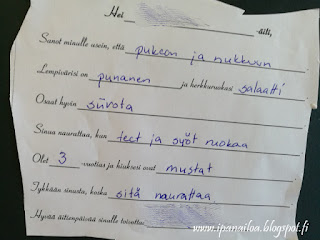 Hei -äiti,
Sanot minulle usein, että pukeon ja nukkuun
Lempivärisi on punanen ja herkkuruokasi salaatti
Osaat hyvin siivota
Sinua naurattaa, kun teet ja syöt ruokaa
Olet 3 -vuotias ja hiuksesi ovat mustat
Tykkään sinusta, koska sitä naurattaa
Hyvää äitienpäivää sinulle toivottaa
www.ipanailoa.blogspot.fi